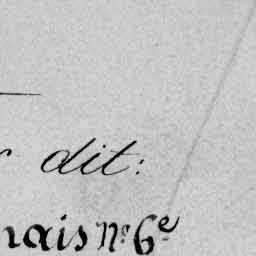 dit:
nais n° 6e